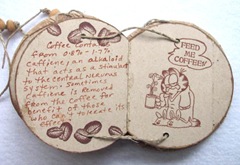 Coffee contains
from 0.8% - 1.7%
caffiene, an alkaloid
that acts as a stimulant
to the central nervous
system. Sometimes
caffiene is removed
from the coffee for
benefit of those
who can't tolerate its
effect
FEED
ME
COFFEE!